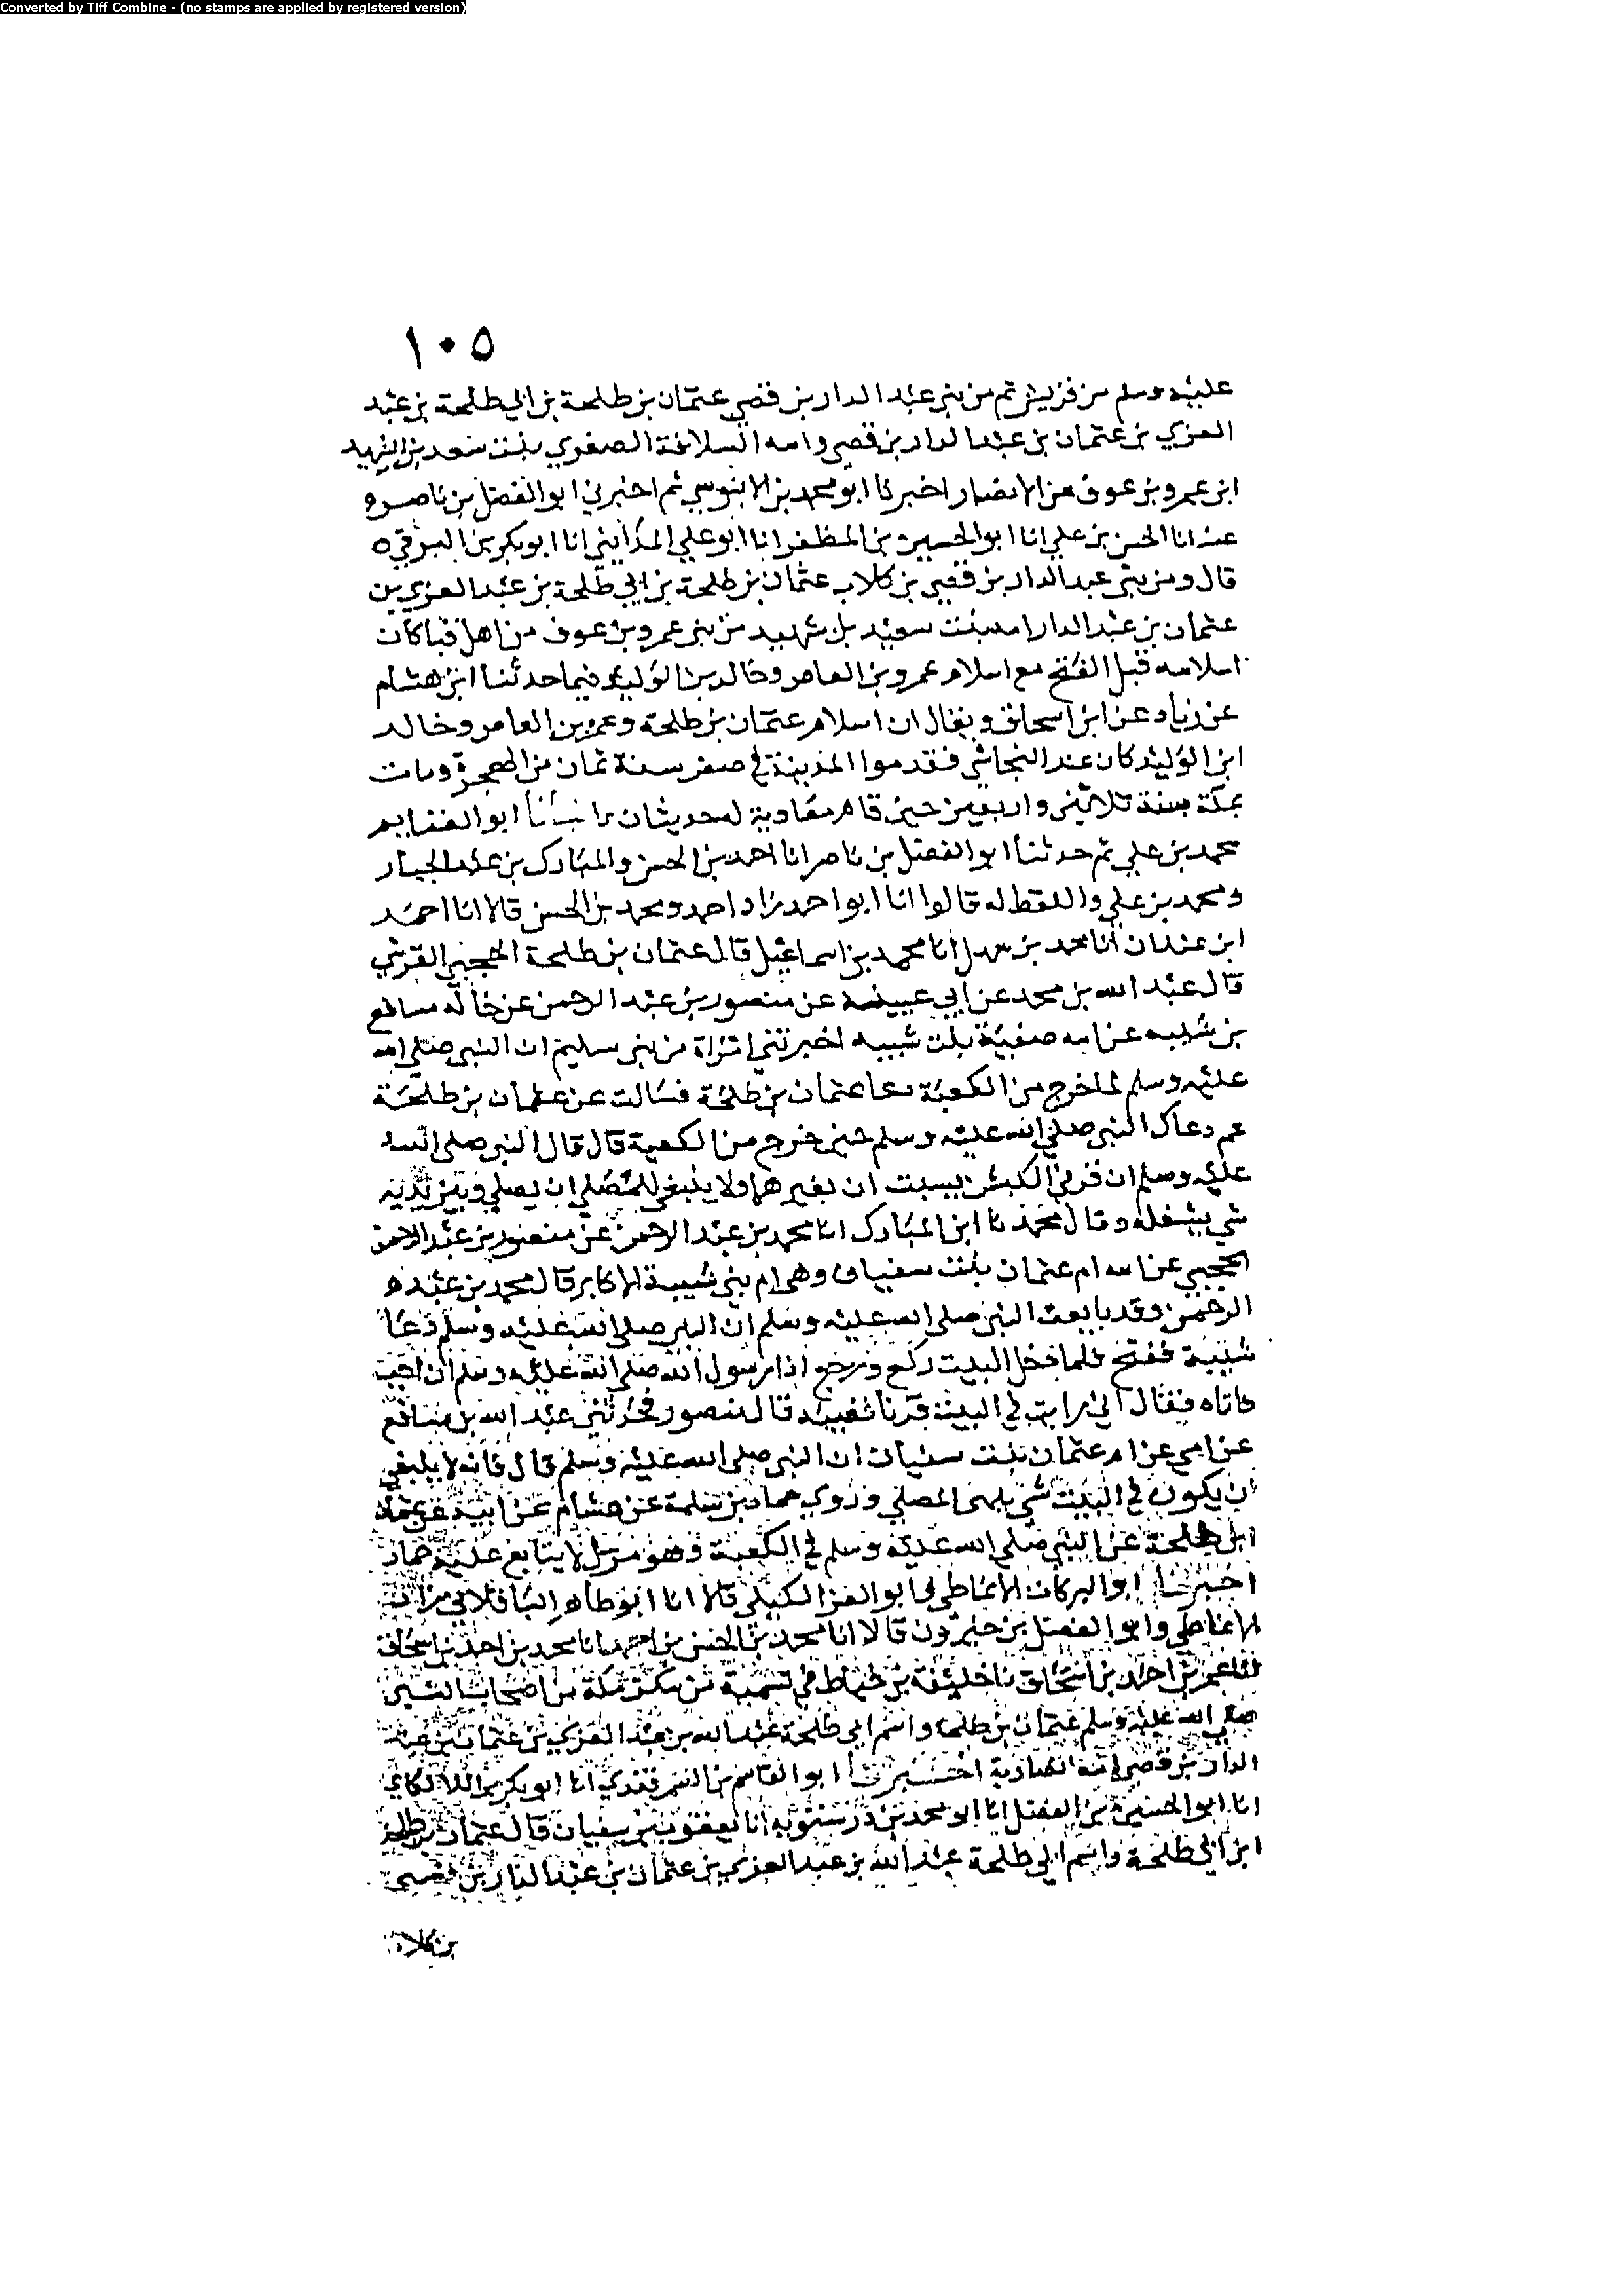 Converted by Tiff Combine - (no stamps are applied by registered version)
١٠٥
عليه وسلم من قريش ثم من بني عبد الدار بن قصي عثمان بن طلحة بن ابي طلحة بن عبد
العزي بن عثمان بن عبد الدار بن قصي وامه السلافة الصغري بنت سعد بن الشهيد
ابن عمرو بن عوف من الانصار اخبرنا ابو محمد بن الابنوسي ثم اخبرني ابو الفضل بن ناصر ه
عنه انا الحسن بن علي انا ابو الحسين بن المظفر انا ابو علي المدايني انا ابو بكر بن البرقي ه
قال ومن بني عبد الدار بن قصي بن كلاب عثمان بن طلحة بن ابي طلحة بن عبد العزي بن
عثمان بن عبد الدار امه بنت سعيد بن شهيد من بني عمرو بن عوف من اهل قبا كان
اسلامه قبل الفتح مع اسلام عمرو بن العاص وخالد بن الوليد فيما حدثنا ابن هشام
عن زياد عن ابن اسحاق ويقال ان اسلام عثمان بن طلحة وعمرو بن العاص وخالد
ابن الوليد كان عند النجاشي فقدموا المدينة في صفر سنة ثمان من الهجرة ومات
بمكة سنة ثلاثين واربعين حين قام معاوية له حديثان انبأنا ابو الغنايم
محمد بن علي ثم حدثنا ابو الفضل بن ناصر انا احمد بن الحسن والمبارك بن عبد الجبار
ومحمد بن علي واللفظ له قالوا انا ابو احمد زاد احمد ومحمد بن الحسن قالا انا احمد
ابن عبدان انا محمد بن سهل انا محمد بن اسماعيل قال عثمان بن طلحة الحجبي القرشي
قال عبد الله بن محمد عن ابي عيينة عن منصور بن عبد الرحمن عن خاله مسافع
بن شيبه عن امه صفية بنت شيبه اخبرتني امراة من بني سليم ان النبي صلى الله
عليه وسلم لما خرج من الكعبة دعا عثمان بن طلحة فسالت عن عثمان بن طلحة
عم دعاك النبي صلى الله عليه وسلم حين خرج من الكعبة قال قال النبي صلى الله
عليه وسلم ان قرني الكبش نسيت ان تغيرهما ولا ينبغي للمصلي ان يصلي وبين يديه
شي يشغله وقال محمد نا ابن المبارك انا محمد بن عبد الرحمن عن منصور بن عبد الرحمن
الحجبي عن امه ام عثمان بنت سفيان وهي ام بني شيبة الاكابر قال محمد بن عبد ه
الرحمن وقد بايعت النبي صلى الله عليه وسلم ان النبي صلى الله عليه وسلم دعا
شيبة ففتح فلما دخل البيت ركع ورجع اذا رسول الله صلى الله عليه وسلم ان اجب
فاتاه فقال اني رايت في البيت قرنا فغيبه قال منصور فحدثني عبد الله بن مسافع
عن امي عن ام عثمان بنت سفيان ان النبي صلى الله عليه وسلم قال فانه لا ينبغي
ان يكون في البيت شي يلهي المصلي وروي حماد بن سلمة عن هشام عن ابيه عن عثمان
ابن طلحة عن النبي صلى الله عليه وسلم في الكعبة وهو مرسل لا يتابع عليه حماد
اخبرنا ابو البركات الانماطي وابو العز الكيلي قالا انا ابو طاهر الباقلاني زاد
الانماطي وابو الفضل بن خيرون قالا انا محمد بن الحسن بن احمد انا محمد بن احمد بن اسحاق
انا عمر بن احمد بن اسحاق نا خليفة بن خياط في تسمية من سكن مكة من اصحاب النبي
صلى الله عليه وسلم عثمان بن طلحة واسم ابي طلحة عبد الله بن عبد العزي بن عثمان بن عبد
الدار بن قصي امه انصارية اخبرنا ابو القاسم بن السمرقندي انا ابو بكر بن اللالكاي
انا ابو الحسين بن الفضل انا ابو محمد بن درستويه انا يعقوب بن سفيان قال عثمان بن طلحة
ابن ابي طلحة واسم ابي طلحة عبد الله بن عبد العزي بن عثمان بن عبد الدار بن قصي
بن كلاب